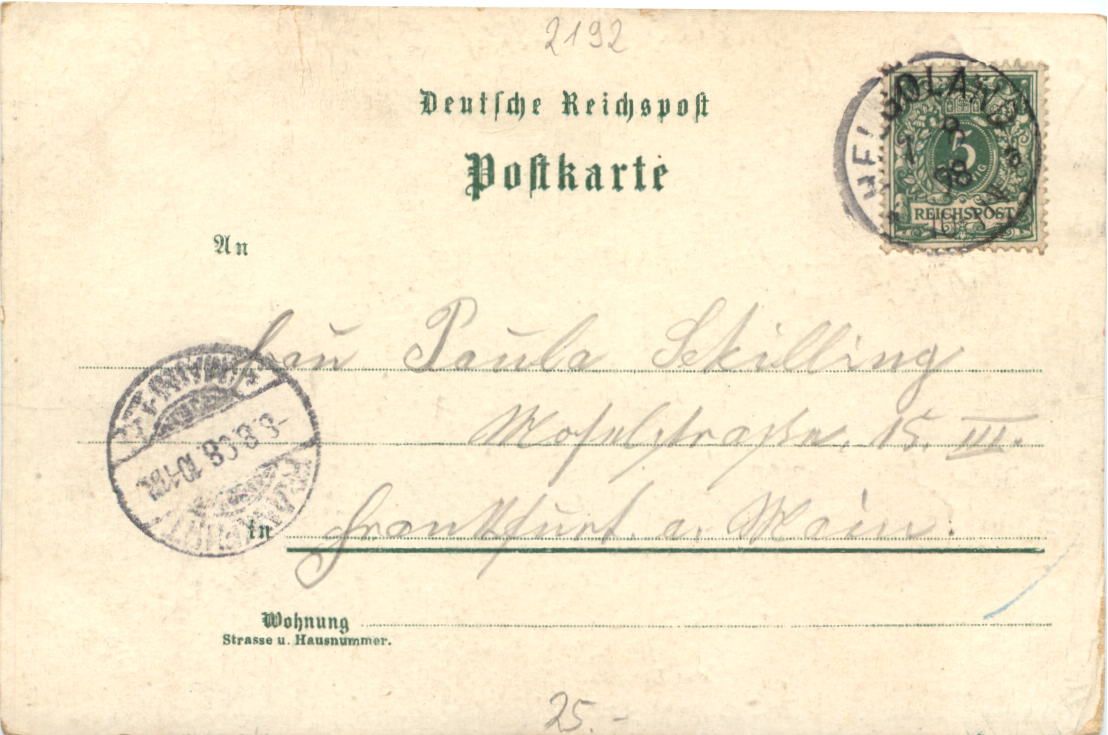 2192
Deutsche Reichspost
Postkarte
HELGOLAND
8
98
5
REICHSPOST
An
Frau Paula Schilling
Moselstrasse 15. III.
in Frankfurt a. Main.
FRANKFURT
8.8.98.
Wohnung
Strasse u. Hausnummer.
25.-